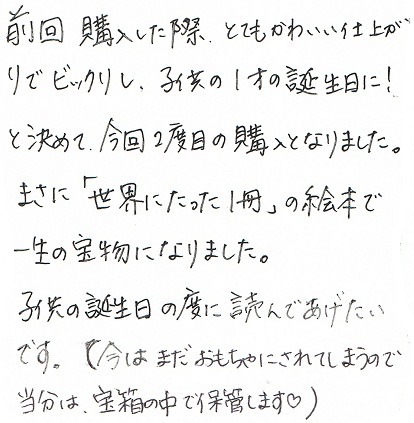 前回 購入した際、とてもかわいい仕上が
りでビックリし、子供の1才の誕生日に!
と決めて、今回2度目の購入となりました。
まさに「世界にたった1冊」の絵本で
一生の宝物になりました。
子供の誕生日の度に読んであげたい
です。(今はまだおもちゃにされてしまうので
当分は、宝箱の中で保管します♡)